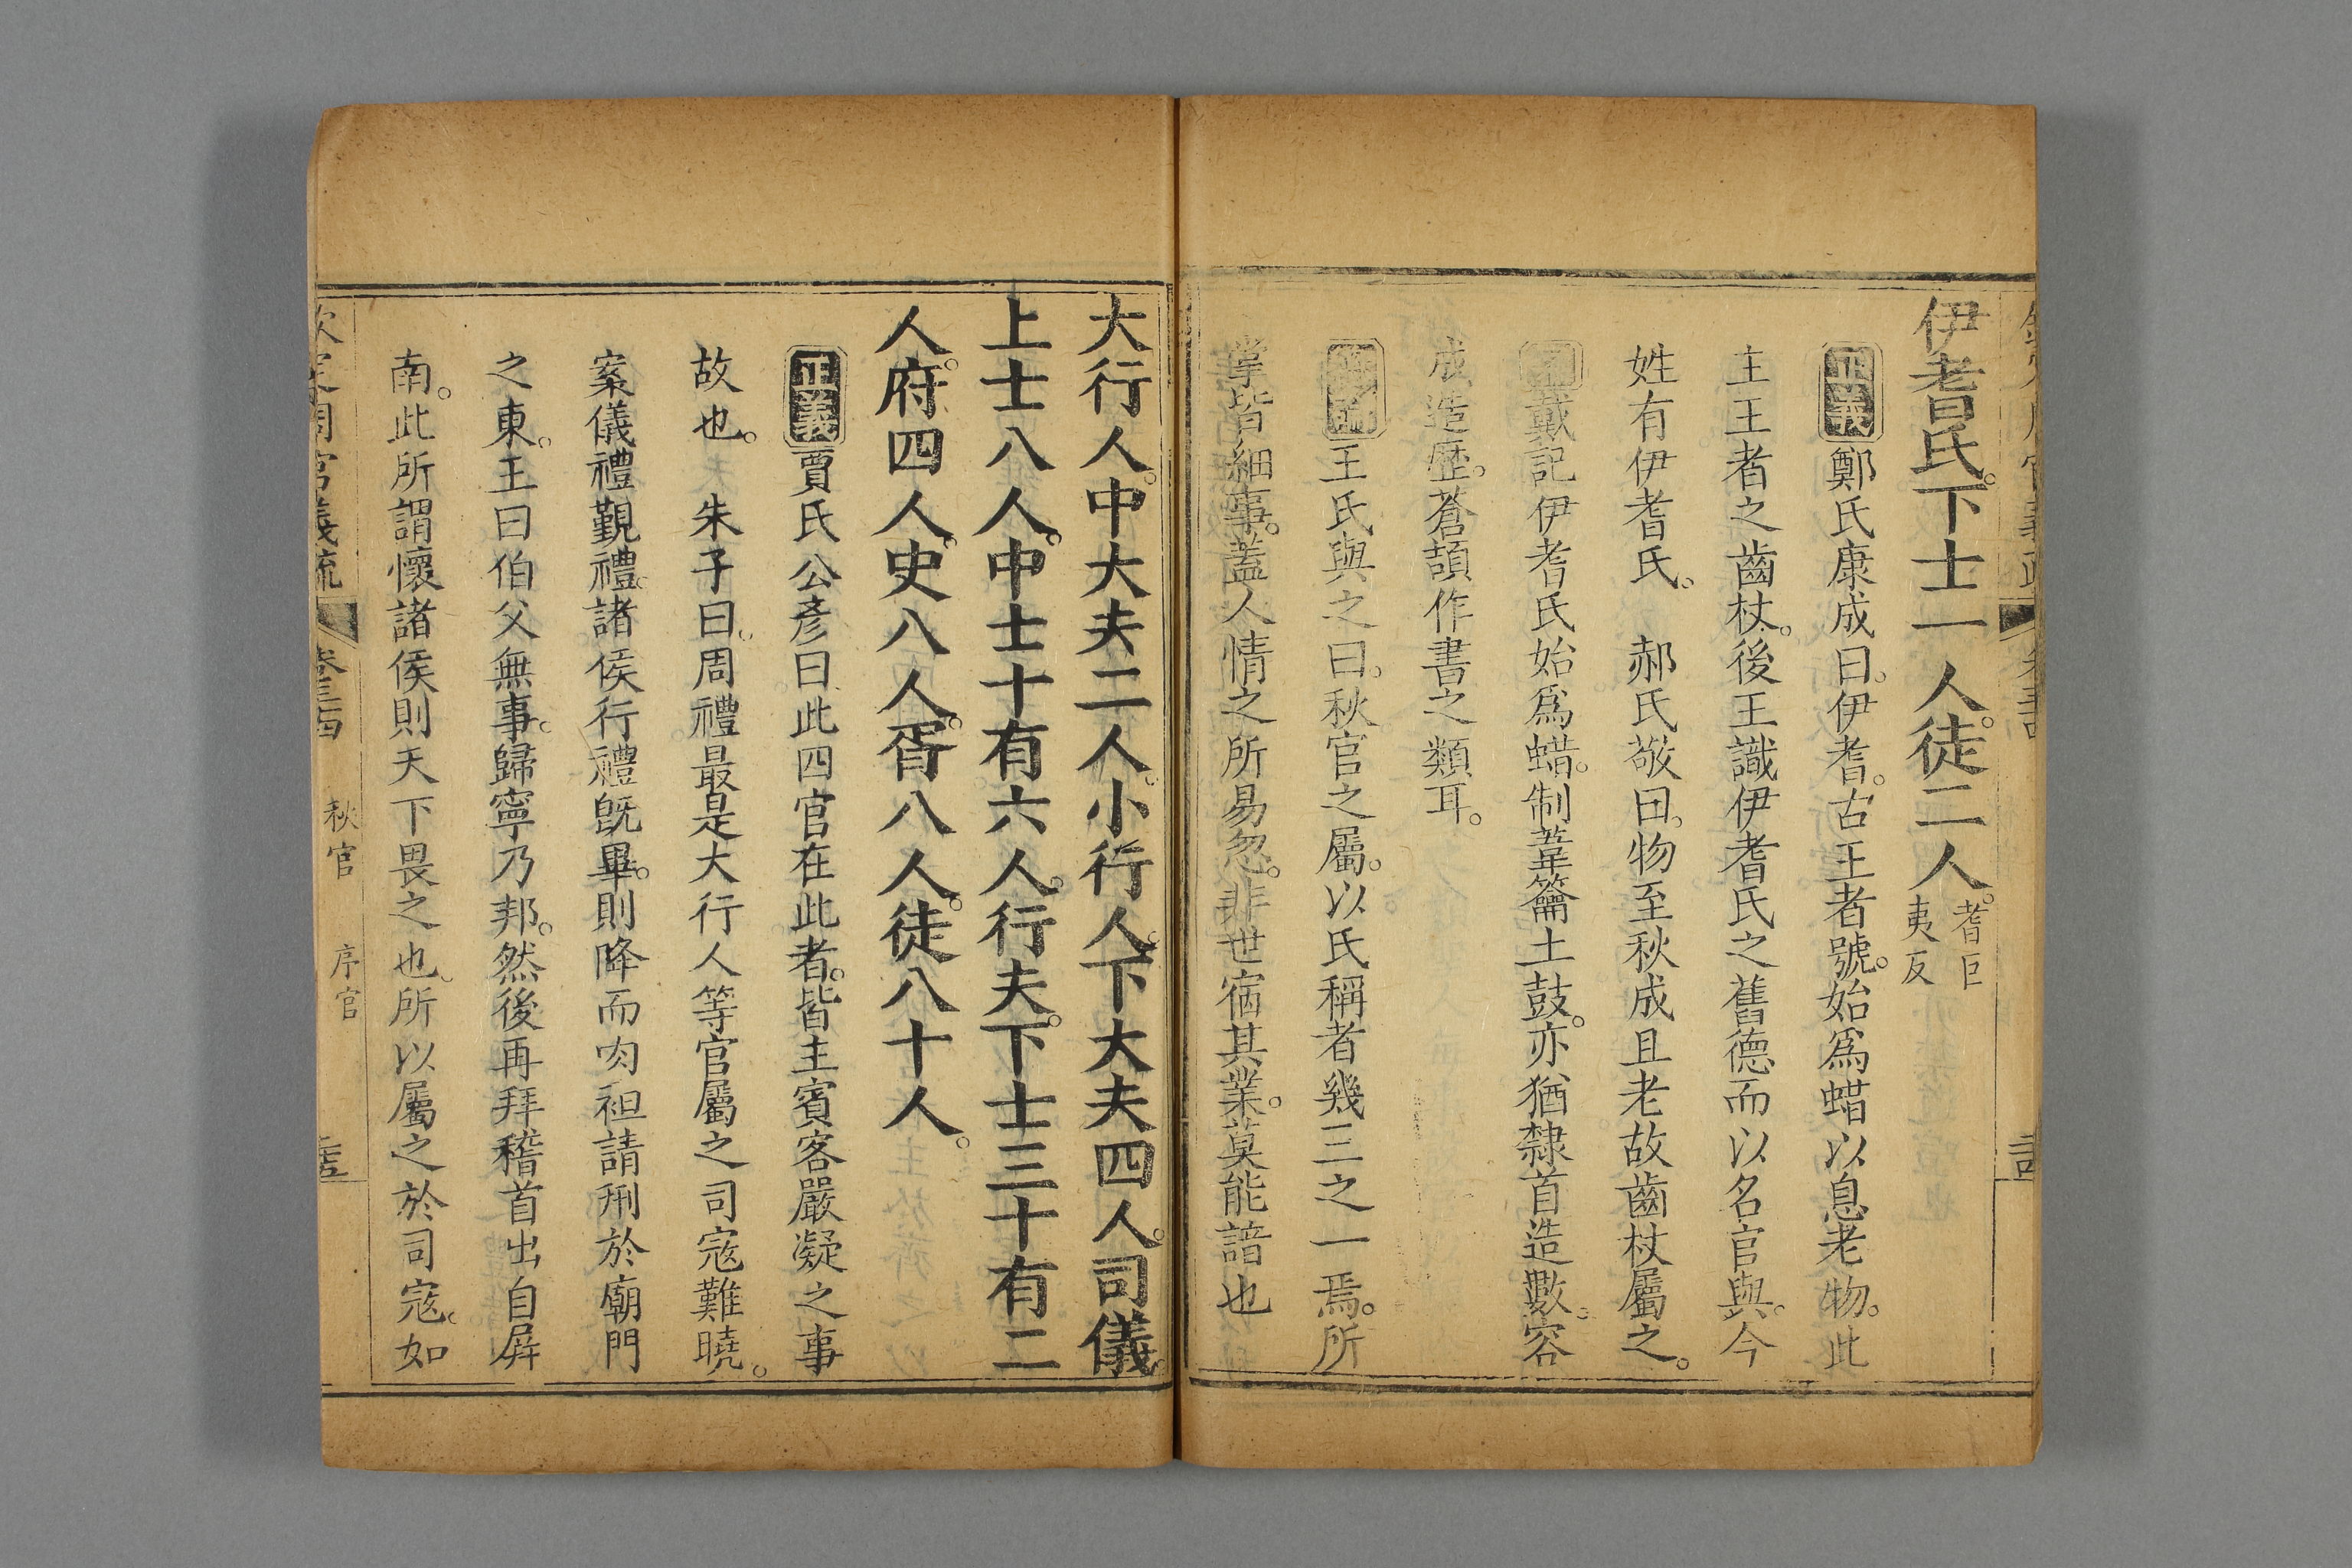 伊耆氏。下士一人。徒二人。耆巨夷反
正義鄭氏康成曰。伊耆。古王者號。始爲蜡以息老物。此
主王者之齒杖。後王識伊耆氏之舊德。而以名官與。今
姓有伊耆氏。 郝氏敬曰。物至秋成且老故齒杖屬之。
戴記伊耆氏始爲蜡。制葦籥土鼓。亦猶隸首造數。容
成造歷。蒼頡作書之類耳。
王氏與之曰。秋官之屬。以氏稱者幾三之一焉。所
掌皆細事。蓋人情之所易忽。非世宿其業。莫能諳也
大行人。中大夫二人。小行人。下大夫四人。司儀。
上士八人。中士十有六人。行夫。下士三十有二
人。府四人。史八人。胥八人。徒八十人。
正義賈氏公彥曰。此四官在此者。皆主賓客嚴凝之事
故也。 朱子曰。周禮最是大行人等官屬之司寇難曉。
案儀禮覲禮。諸侯行禮旣畢。則降而肉袒請刑於廟門
之東。王曰伯父無事。歸寧乃邦。然後再拜稽首出自屏
南。此所謂懷諸侯則天下畏之也。所以屬之於司寇。如
欽定周官義疏 卷三十四 秋官 序官